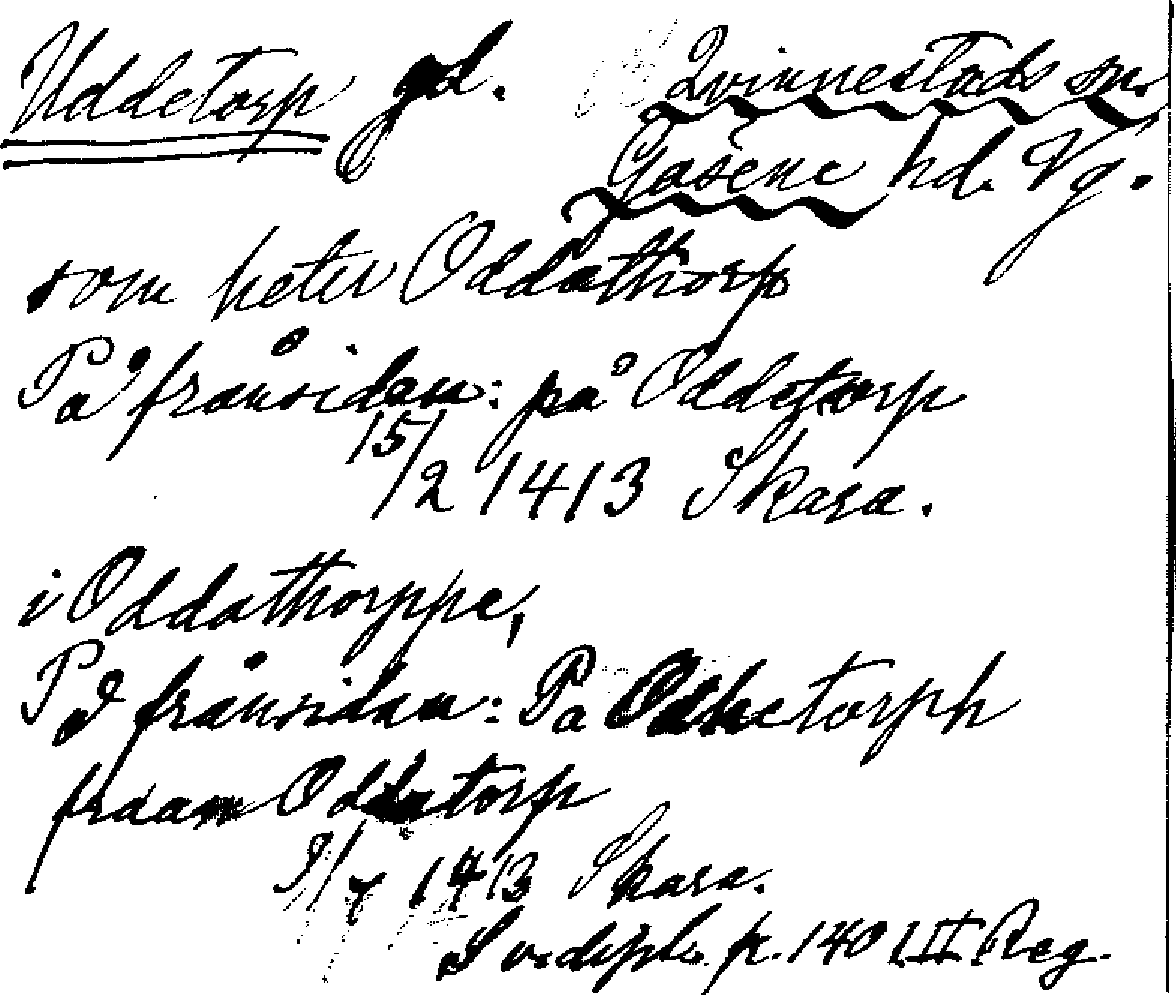 Uddetorp gd. Qvinnestads sn.
Gäsene hd. Vg.
som heter Oddathorp
På frånsidan: på Oddetorp
15/2 1413 Skara.
i Oddathorppe,
På frånsidan: Pa Oddhetorph
fraan Oddatorp
1413 Skara.
Sv. dipl. p. 140 III Reg.